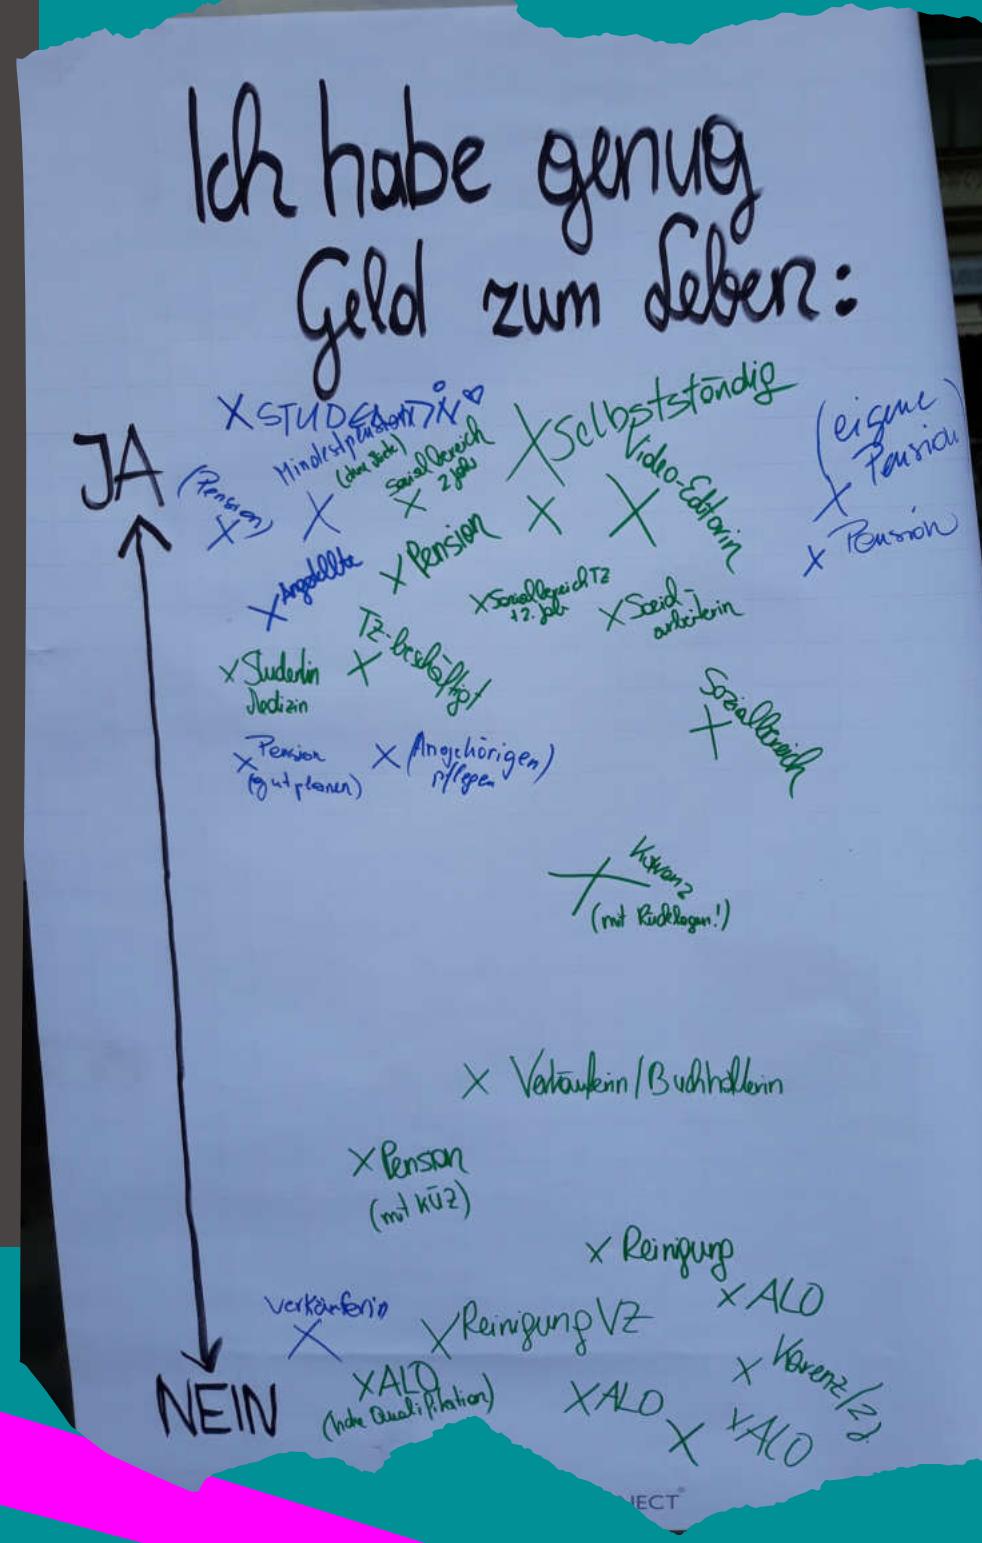 Ich habe genug
Geld zum Leben:
JA
X STUDENTIN ♡
Mindestpension
(ohne Kinder)
X
Sozialbereich
2 Jobs
X
X Selbstständig
Video-Editorin
X
X
(eigene
Pension
X
X Pension
(Pension)
X
X Pension
X Angestellte
X Sozialbereich TZ
+2. Job
X Sozial-
arbeiterin
TZ-beschäftigt
X
X Studentin
Medizin
Sozialbereich
X
X Pension
(gut planen)
X (Angehörigen)
pflegen
X Karenz
(mit Rücklagen!)
X Verkäuferin/Buchhalterin
X Pension
(mit KÜZ)
X Reinigung
X ALO
Verkäuferin
X
X Reinigung VZ
X Karenz/2J.
X ALO
(hohe Qualifikation)
X ALO
X
X ALO
NEIN